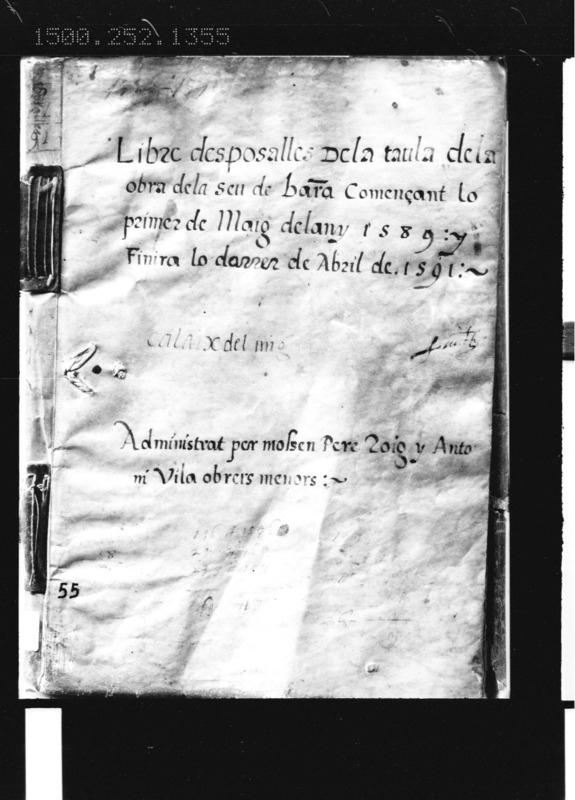 1500.252.1355
Libre desposalles dela taula dela
obra dela seu de bar̃a Començant lo
primer de Maig delany 1589: y
Finira lo darrer de Abril de .1591:~
Calaix del mig
Administrat per mossen Pere Roig y Anto
ni Vila obrers menors :~
55